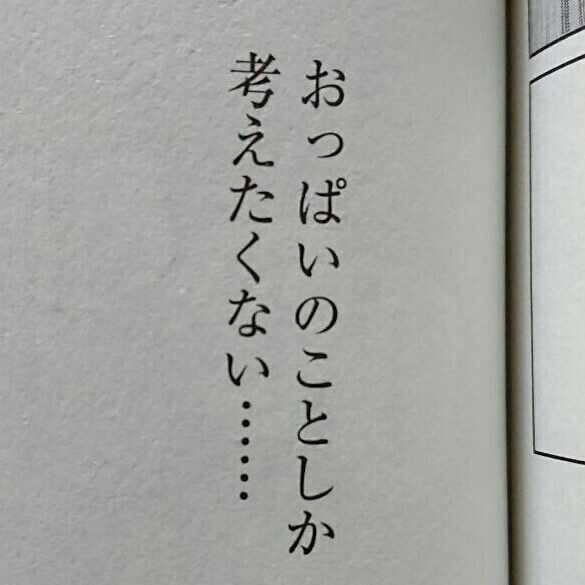 おっぱいのことしか
考えたくない……